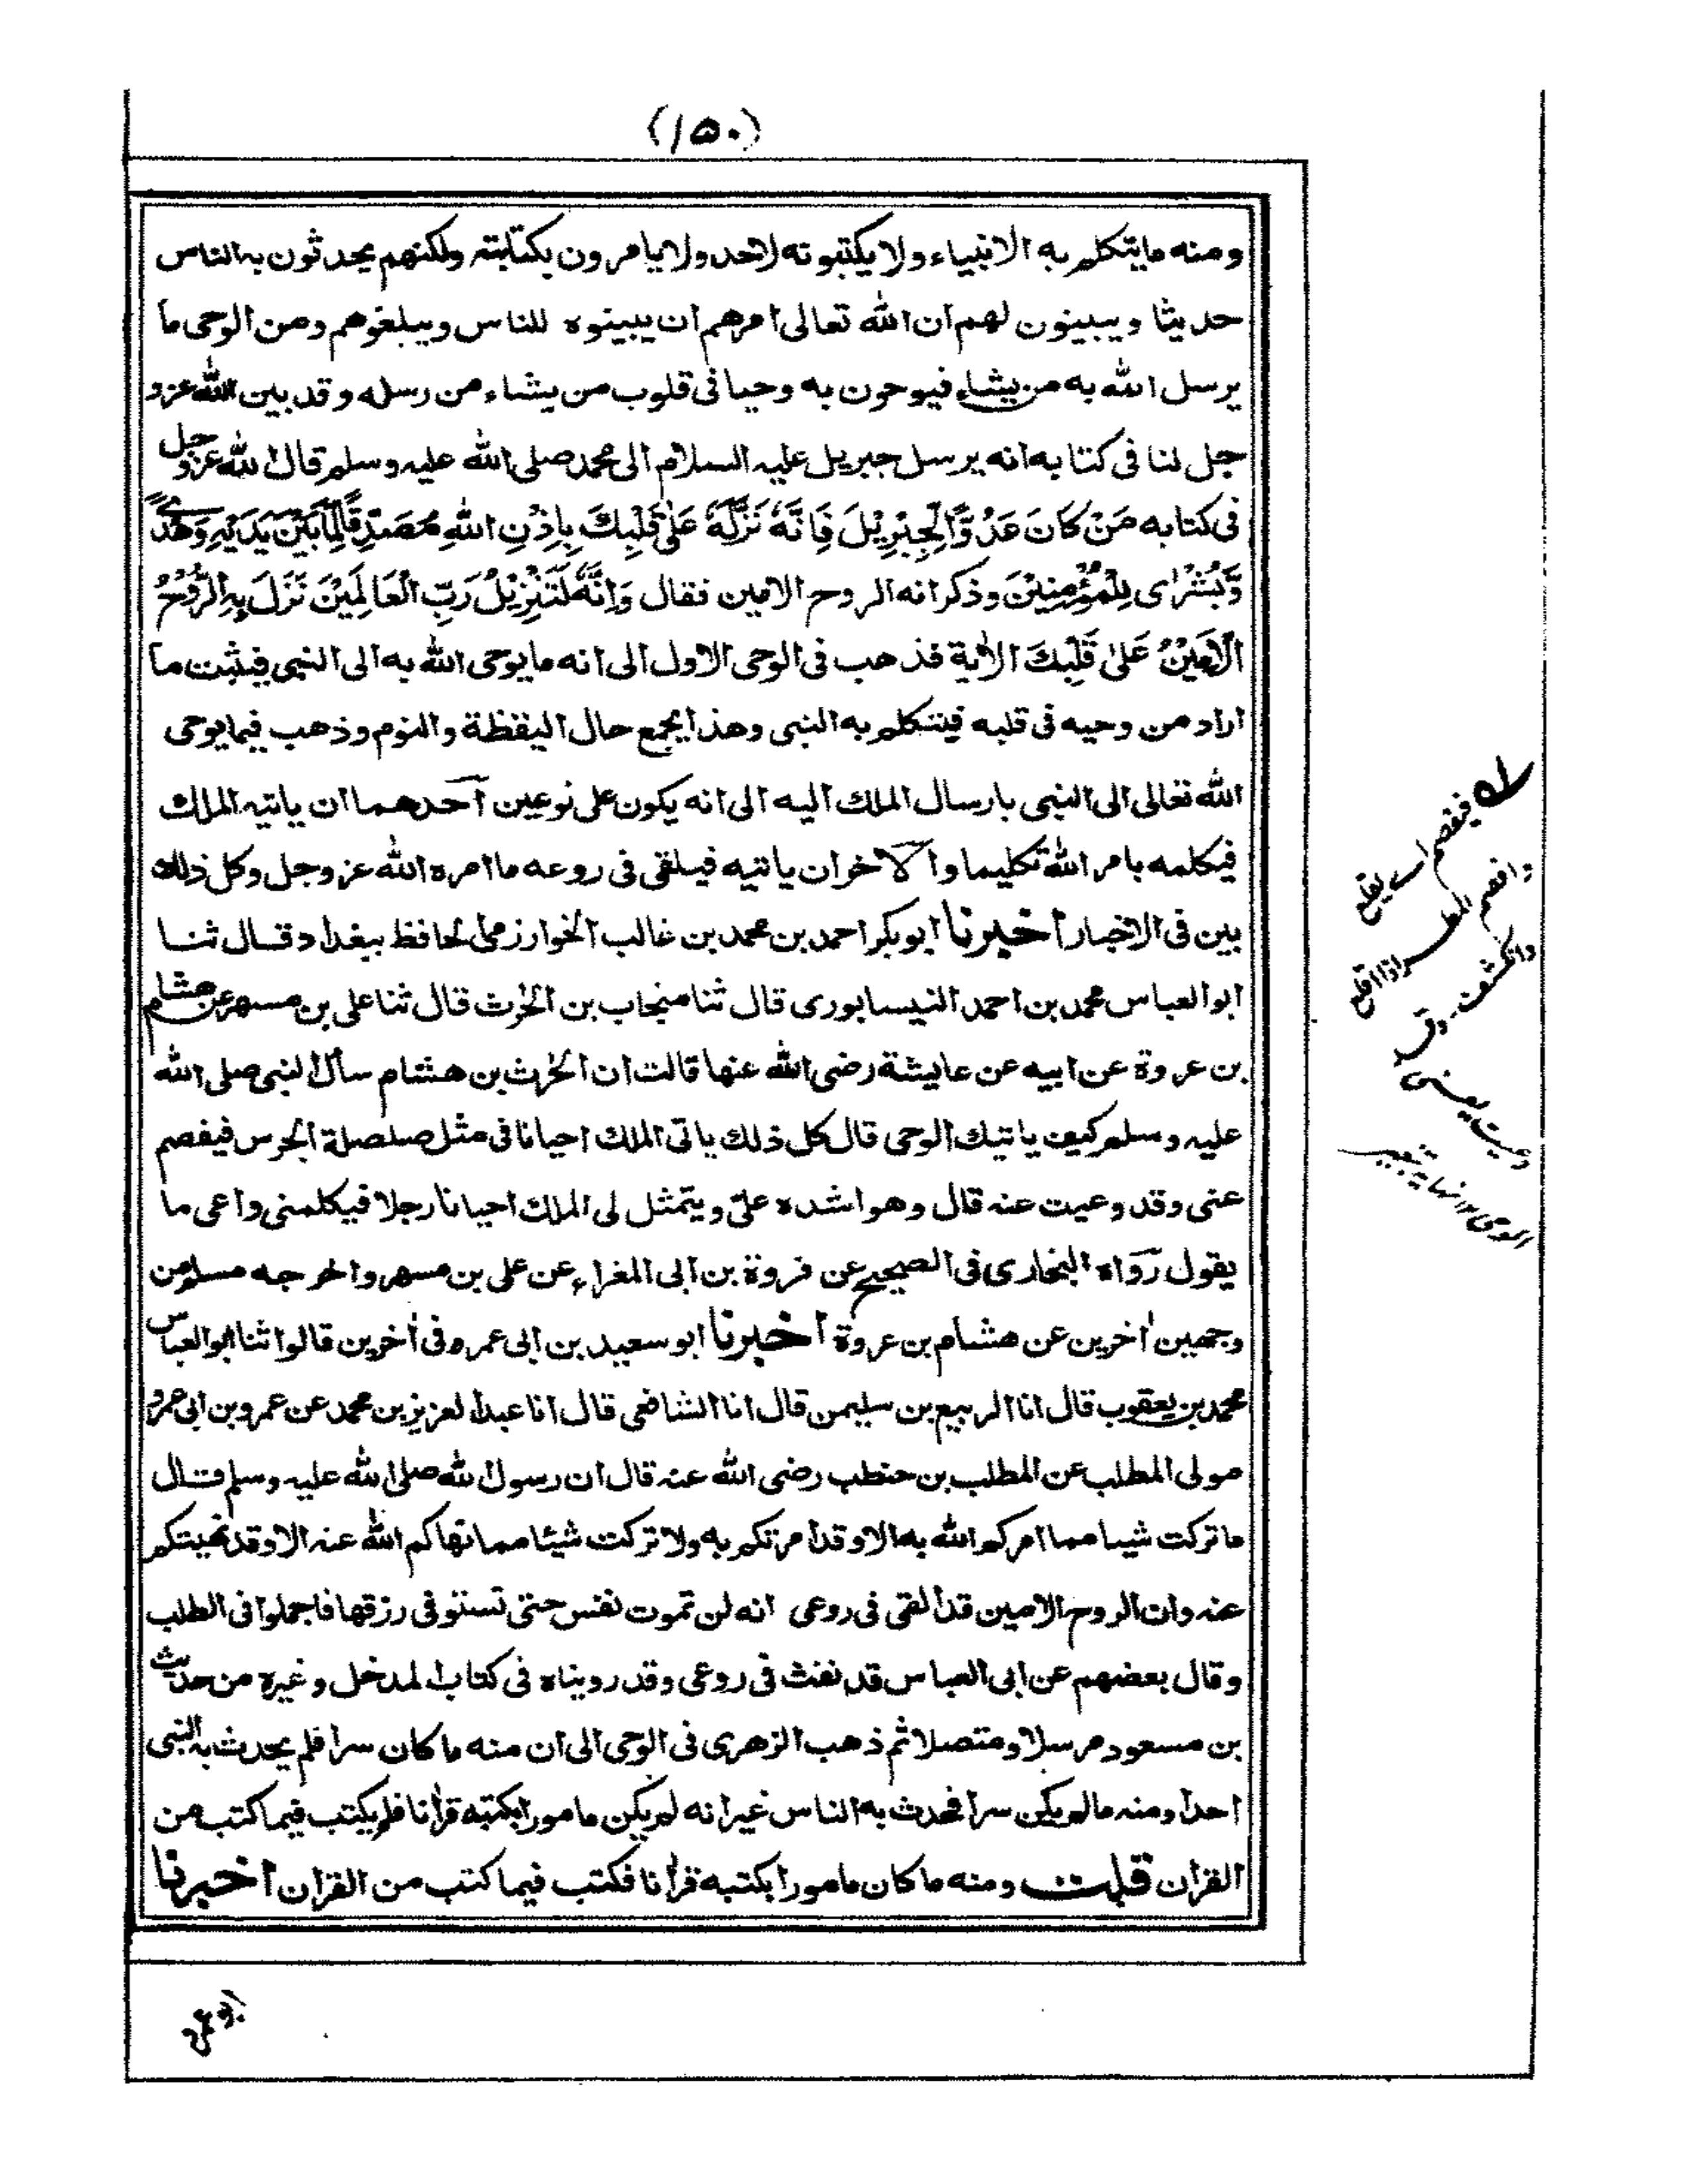 (۱۵۰)
ومنه مايتكلم به الانبياء ولا يكتبونه لاحد ولا يامرون بكتابته ولكنهم يحدثون به الناس
حديثا ويبينون لهم ان الله تعالى امرهم ان يبينوه للناس ويبلغوهم ومن الوحى ما
يرسل الله به من يشاء فيوحون به وحيا فى قلوب من يشاء من رسله وقد بين الله عزو
جل لنا فى كتابه انه يرسل جبريل عليه السلام الى محمد صلى الله عليه وسلم قال الله عزوجل
فى كتابه مَنْ كَانَ عَدُوًّا لِّجِبْرِيْلَ فَاِنَّهٗ نَزَّلَهٗ عَلٰى قَلْبِكَ بِاِذْنِ اللّٰهِ مُصَدِّقًا لِّمَا بَيْنَ يَدَيْهِ وَهُدًى
وَّبُشْرٰى لِلْمُؤْمِنِيْنَ وذكر انه الروح الامين فقال وَاِنَّهٗ لَتَنْزِيْلُ رَبِّ الْعَالَمِيْنَ نَزَلَ بِهِ الرُّوْحُ
الْاَمِيْنُ عَلٰى قَلْبِكَ الأية فذهب فى الوحى الاول الى انه مايوحى الله به الى النبى فيثبت ما
اراد من وحيه فى قلبه فيتكلم به النبى وهذا يجمع حال اليقظة والنوم وذهب فيما يوحى
الله تعالى الى النبى بارسال الملك اليه الى انه يكون على نوعين احدهما ان ياتيه الملك
فيكلمه بامر الله تكليما والآخر ان ياتيه فيلقى فى روعه ما امره الله عز وجل وكل ذلك
بين فى الاخبار اخبرنا ابوبكر احمد بن محمد بن غالب الخوارزمى الحافظ ببغداد قال ثنا
ابو العباس محمد بن احمد النيسابورى قال ثنا منجاب بن الحرث قال ثنا على بن مسهر عن هشام
بن عروة عن ابيه عن عايشة رضى الله عنها قالت ان الحرث بن هشام سأل النبى صلى الله
عليه وسلم كيف ياتيك الوحى قال كل ذلك ياتى الملك احيانا فى مثل صلصلة الجرس فيفصم
عنى وقد وعيت عنه قال وهو اشده علىّ ويتمثل لى الملك احيانا رجلا فيكلمنى واعى ما
يقول رواه البخارى فى الصحيح عن فروة بن ابى المغراء عن على بن مسهر واخرجه مسلم من
وجهين اخرين عن هشام بن عروة اخبرنا ابو سعيد بن ابى عمرو فى أخرين قالوا ثنا ابو العباس
محمد بن يعقوب قال انا الربيع بن سليمن قال انا الشافعى قال انا عبد العزيز بن محمد عن عمرو بن ابى عمرو
مولى المطلب عن المطلب بن حنطب رضى الله عنه قال ان رسول الله صلى الله عليه وسلم قال
ما تركت شيا مما امركم الله به الا وقد امرتكم به ولا تركت شيئا مما نهاكم الله عنه الا وقد نهيتكم
عنه وان الروح الامين قد القى فى روعى انه لن تموت نفس حتى تستوفى رزقها فاجملوا فى الطلب
وقال بعضهم عن ابى العباس قد نفث فى روعى وقد رويناه فى كتاب المدخل وغيره من حديث
بن مسعود مرسلا ومتصلا ثم ذهب الزهرى فى الوحى الى ان منه ما كان سرا فلم يحدث به النبى
احدا ومنه مالم يكن سرا فحدث به الناس غير انه لم يكن مامورا بكتبه قرأنا فلم يكتب فيما كتب من
القرأن قلت ومنه ما كان مامورا بكتبه قرأنا فكتب فيما كتب من القرأن اخبرنا
فيفصم اے يقلع
وانفصم المطر اذا اقلع
وانكشف وقد
وعيت يعنى